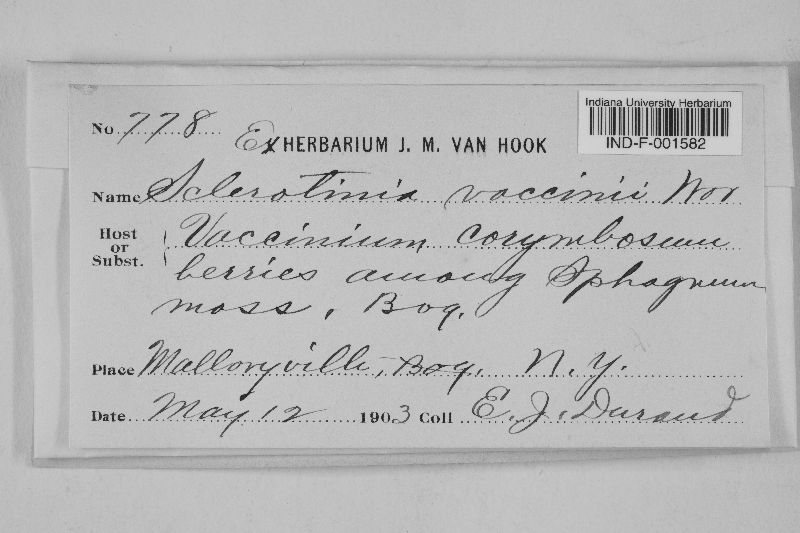 Indiana University Herbarium
IND-F-001582
No. 778
Ex HERBARIUM J. M. VAN HOOK
Name Sclerotinia vaccinii Wor
Host or Subst. Vaccinium corymbosum
berries among Sphagnum
moss, Bog.
Place Malloryville, Bog. N. Y.
Date May 12 1903 Coll E. J. Durand